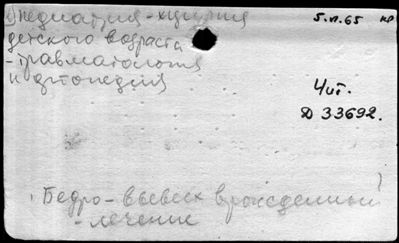 1) педиатрия - хирургия
5.VI.65 кр
детского возраста
- травматология
и ортопедия
Чит.
Д 33692.
Бедро - вывих врожденный
- лечение